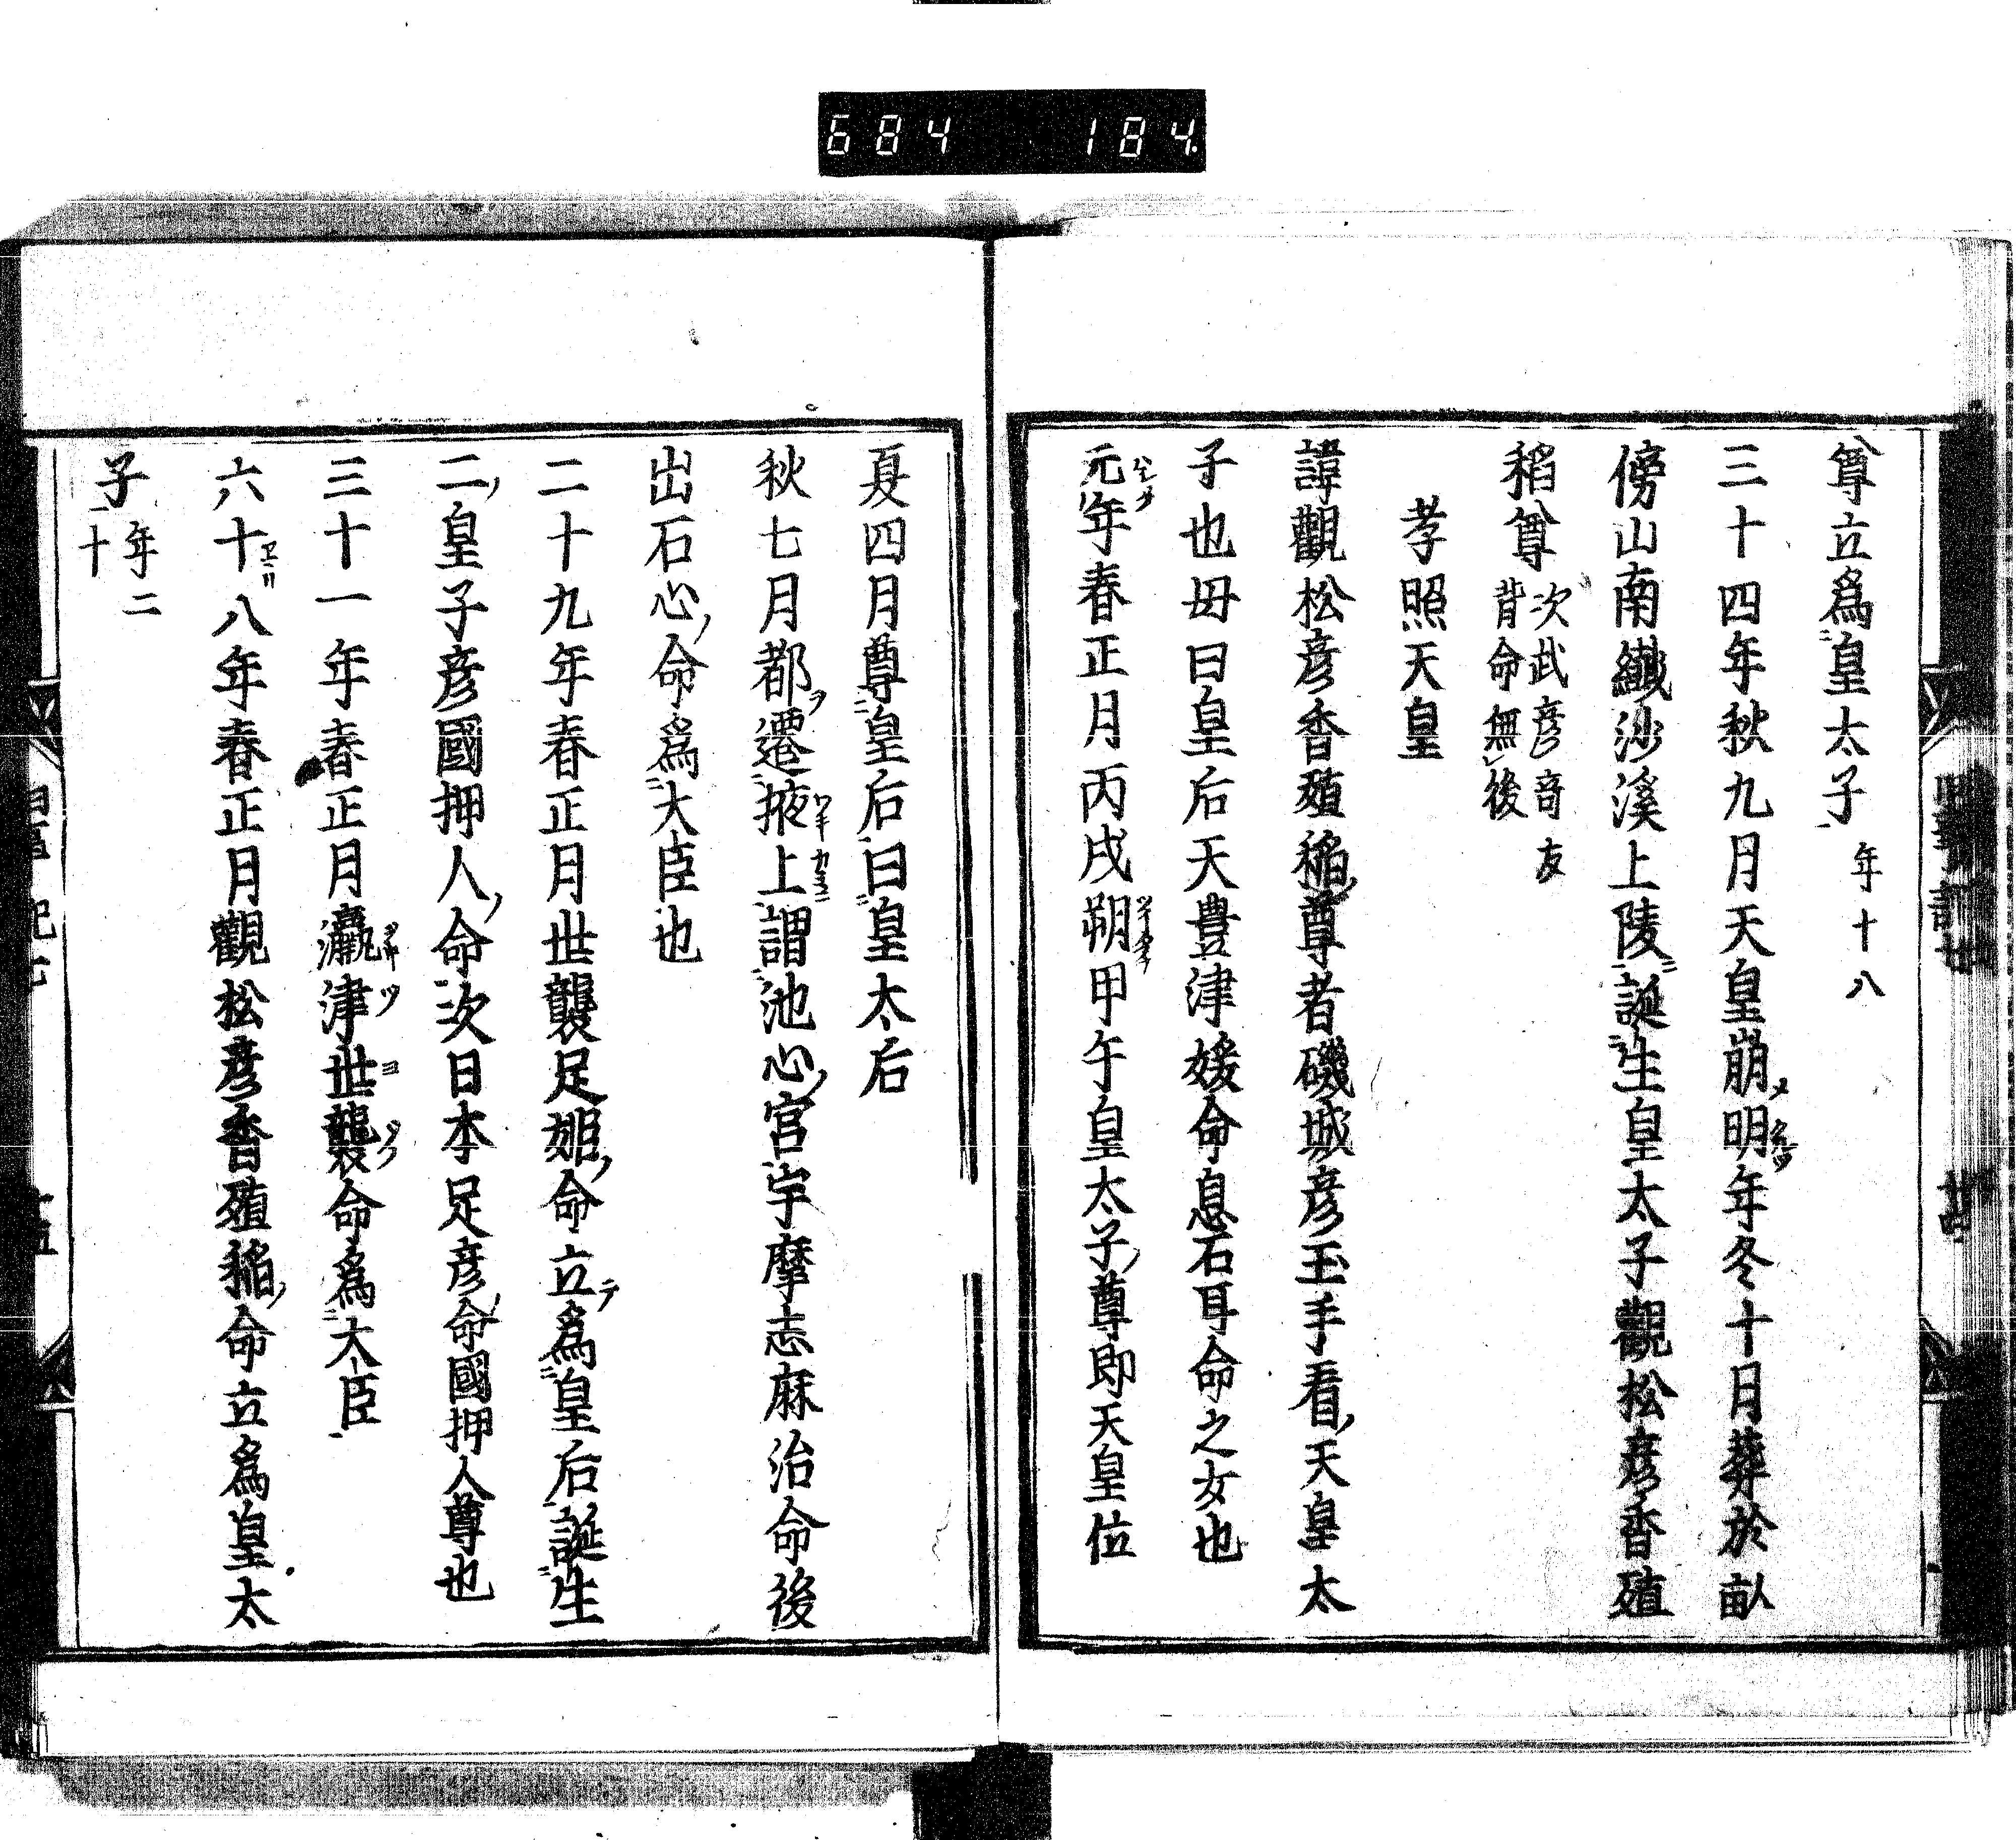 684 184
尊立爲皇太子年十八
三十四年秋九月天皇崩明年冬十月葬於畝
傍山南纎沙溪上陵誕生皇太子觀松彦香殖
稻尊次武彦奇友
背命無後
孝照天皇
諱觀松彦香殖稲尊者磯城彦玉手看天皇太
子也母曰皇后天豊津媛命息石耳命之女也
元年春正月丙戌朔甲午皇太子尊即天皇位
夏四月尊皇后曰皇太后
秋七月都遷掖上謂池心宮宇摩志麻治命後
出石心命爲大臣也
二十九年春正月世襲足姫命立爲皇后誕生
二皇子彦國押人命次日本足彦命國押人尊也
三十一年春正月瀛津世襲命爲大臣
六十八年春正月觀松彦香殖稲命立爲皇太
子年二
十